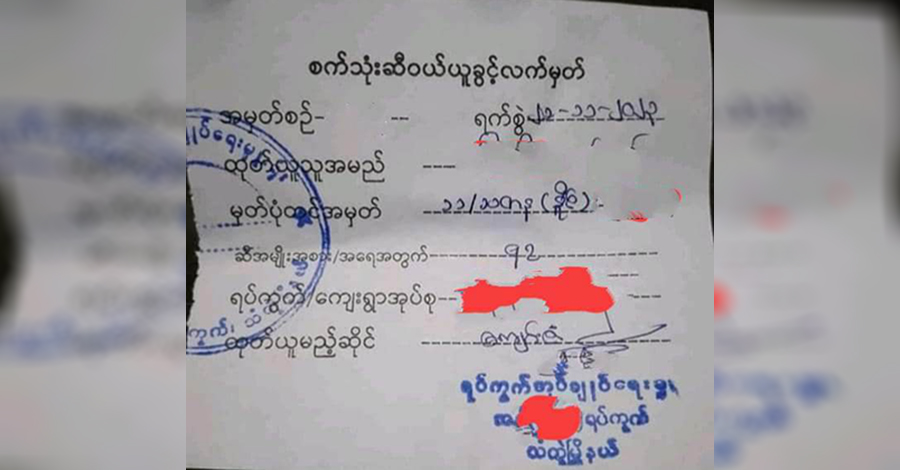 စက်သုံးဆီဝယ်ယူခွင့်လက်မှတ်
အမှတ်စဉ်- -- ရက်စွဲ ၂၁-၁၁-၂၀၂၃
ထုတ်ယူသူအမည် ---
မှတ်ပုံတင်အမှတ် ၁၁/သတန(နိုင်)
ဆီအမျိုးအစား/အရေအတွက် 92
ရပ်ကွက်/ကျေးရွာအုပ်စု--
ထုတ်ယူမည့်ဆိုင်
ရပ်ကွက်အုပ်ချုပ်ရေးမှူး
ရပ်ကွက်
သံတွဲမြို့နယ်